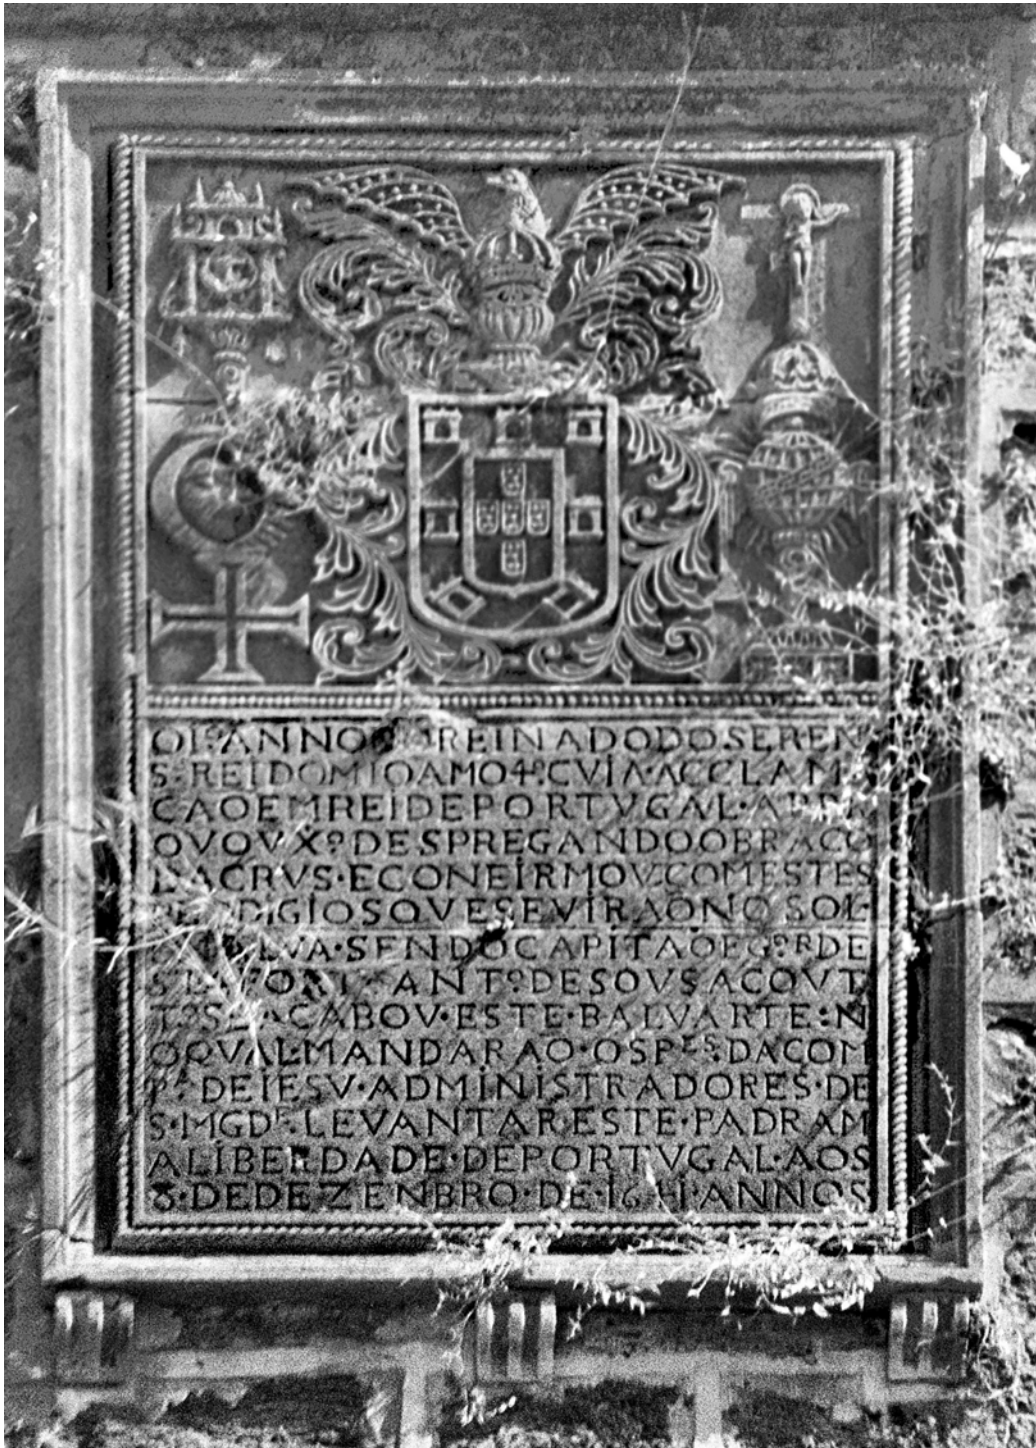 O I.º ANNO REINADO DO SEREN
S.º REI DOM IOAM O 4.º CVIA ACCLAM
CAO EM REI DE PORTVGAL
QVOV X.º DESPREGANDO O BRACO
DA CRVS · E CONFIRMOV COM ESTES
PRODIGIOS QVE SE VIRAÕ NO SOL ·
LVA · SENDO CAPITAO E G.ºR DE
ANT.º DE SOVSA COVT
T.º SE ACABOV · ESTE · BALVARTE : N
O QVAL MANDARAO · OS P.ES · DA COM
P.A DE IESV · ADMINISTRADORES · DE
S · MGD.E · LEVANTAR ESTE · PADRAM
A LIBERDADE · DE PORTVGAL · AOS
8 · DE DEZENBRO · DE · 1641 · ANNOS